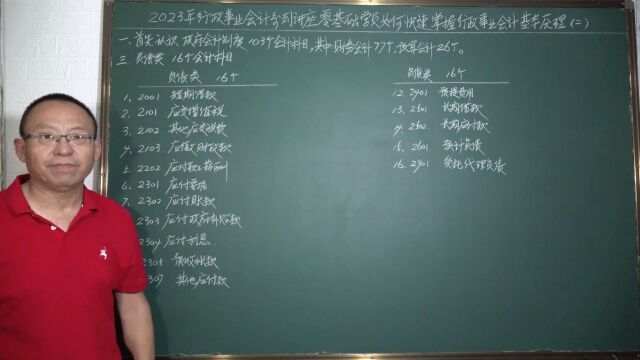 2023年行政事业会计系列讲座零基础学员如何快速掌握行政事业会计基本原理(二)
一.首先认识政府会计制度103个会计科目,其中:财务会计77个.预算会计26个.
三 负债类 16个会计科目
负债类 16个
1、2001 短期借款
2、2101 应交增值税
3、2102 其他应交税费
4、2103 应缴财政款
5、2201 应付职工薪酬
6、2301 应付票据
7、2302 应付账款
2303 应付政府补贴款
2304 应付利息
2305 预收账款
2307 其他应付款
负债类 16个
12、2401 预提费用
13、2501 长期借款
14、2502 长期应付款
15、2601 预计负债
16、2901 受托代理负债